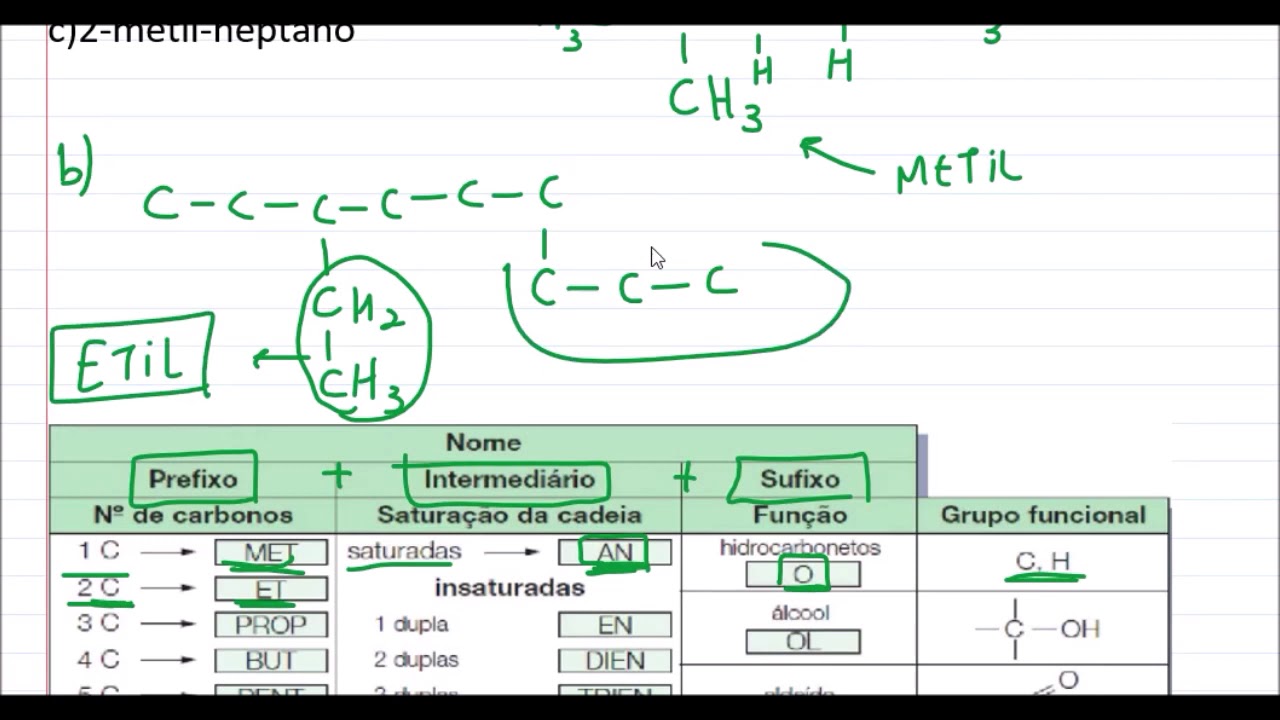 c)2-metil-heptano
3
H
H
3
CH3
METiL
b)
C - C - C - C - C - C
C - C - C
CH2
CH3
ETiL
Nome
Prefixo + Intermediário + Sufixo
Nº de carbonos Saturação da cadeia Função Grupo funcional
1 C MET saturadas AN hidrocarbonetos O C, H
2 C ET insaturadas
3 C PROP 1 dupla EN álcool OL —C—OH
4 C BUT 2 duplas DIEN
O